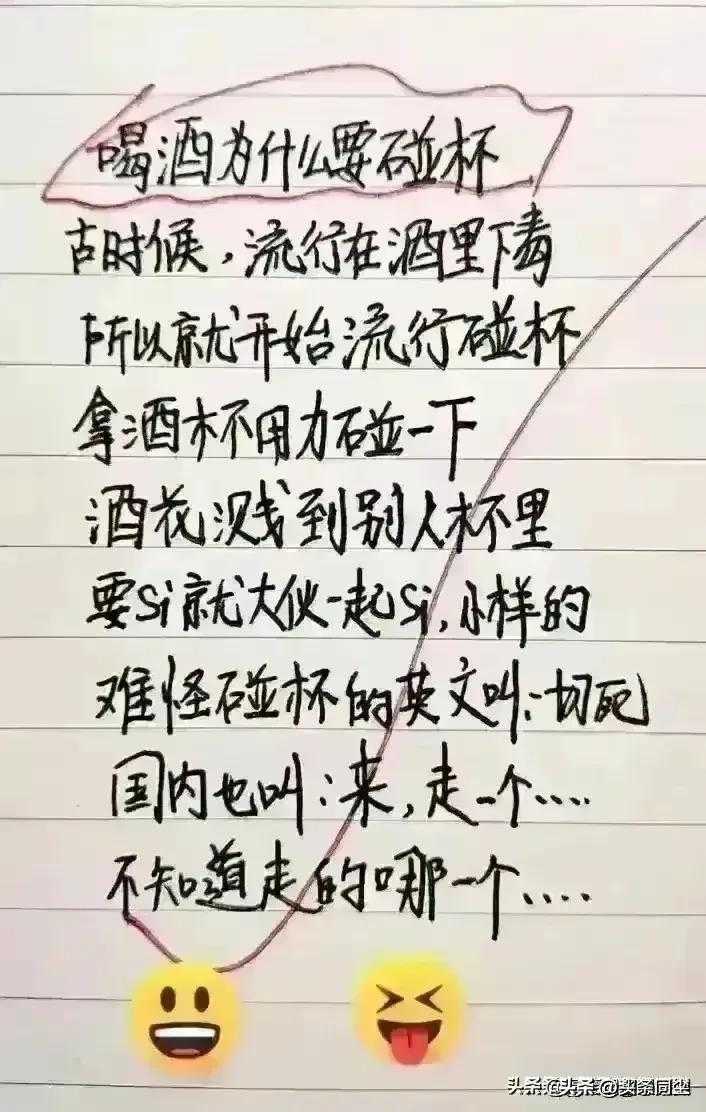 喝酒为什么要碰杯
古时候，流行在酒里下毒
所以就开始流行碰杯
拿酒杯用力碰一下
酒花溅到别人杯里
要Si就大伙一起Si，小样的
难怪碰杯的英文叫：切死
国内也叫：来，走一个....
不知道走的哪一个....